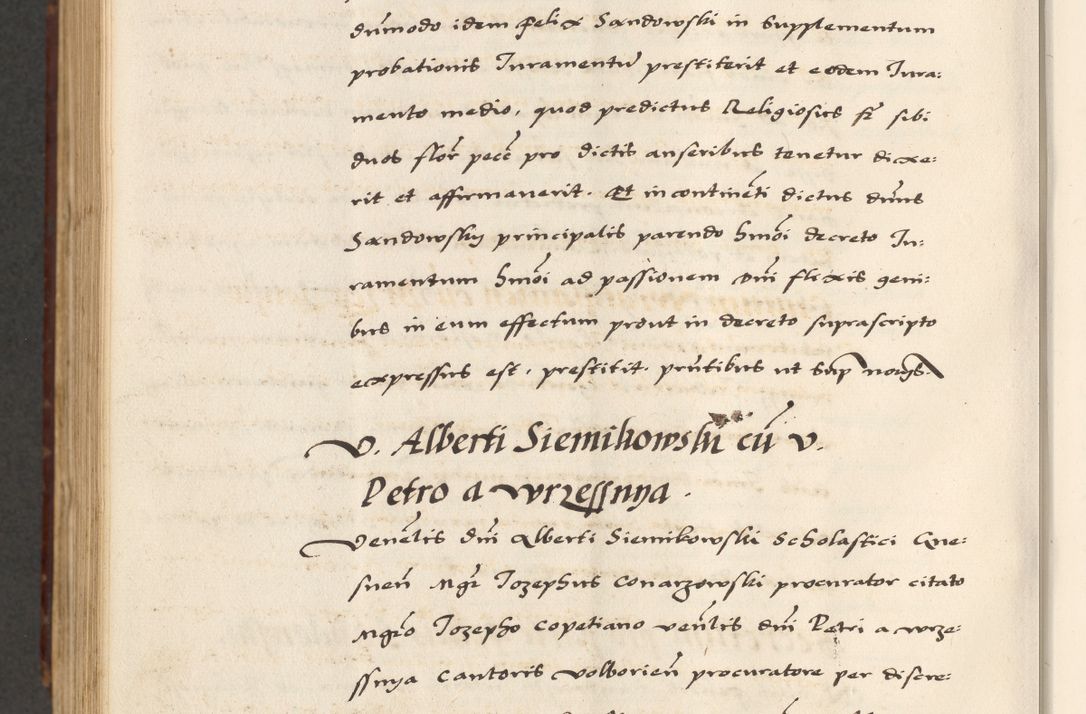 dūmodo idem Felix Sandowski in Supplementum
probationis Iuramentū prestiterit et eodem Iura:
mento medio, quod predictus Religiosus fr̄ sibi
duos flor̄ pecc̄ pro dictis anseribus tenetur dixe:
rit et affirmaverit. Et in continēti dictus dn̄us
Sandowsky principalis parendo hmōi decreto Iu:
ramentum hmōi ad passionem dn̄i flexis geni:
bus in eum effectum prout in decreto suprascripto
expressus est, prestitit. pn̄tibus ut sup
V. Alberti Siemikowski cū v.
Petro a Wrzessnya .
Venēlis dn̄i Alberti Siemikowski Scholastici Gne:
snen̄ Mgr̄ Iozephus Conarzowski procurator citato
Mgr̄o Iozepho Copetiano venēlis dn̄i Petri a Wrze:
ssnya Cantoris Volborien̄ procuratore per discre: